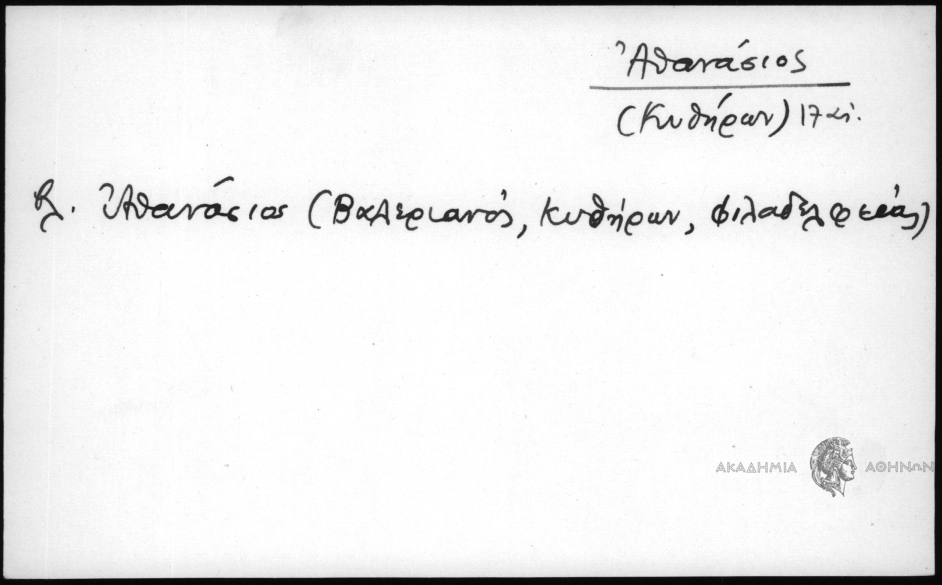 Ἀθανάσιος
(Κυθήρων) 17 αἰ.
βλ. Ἀθανάσιος (Βαλεριανός, Κυθήρων, Φιλαδελφείας)
ΑΚΑΔΗΜΙΑ ΑΘΗΝΩΝ